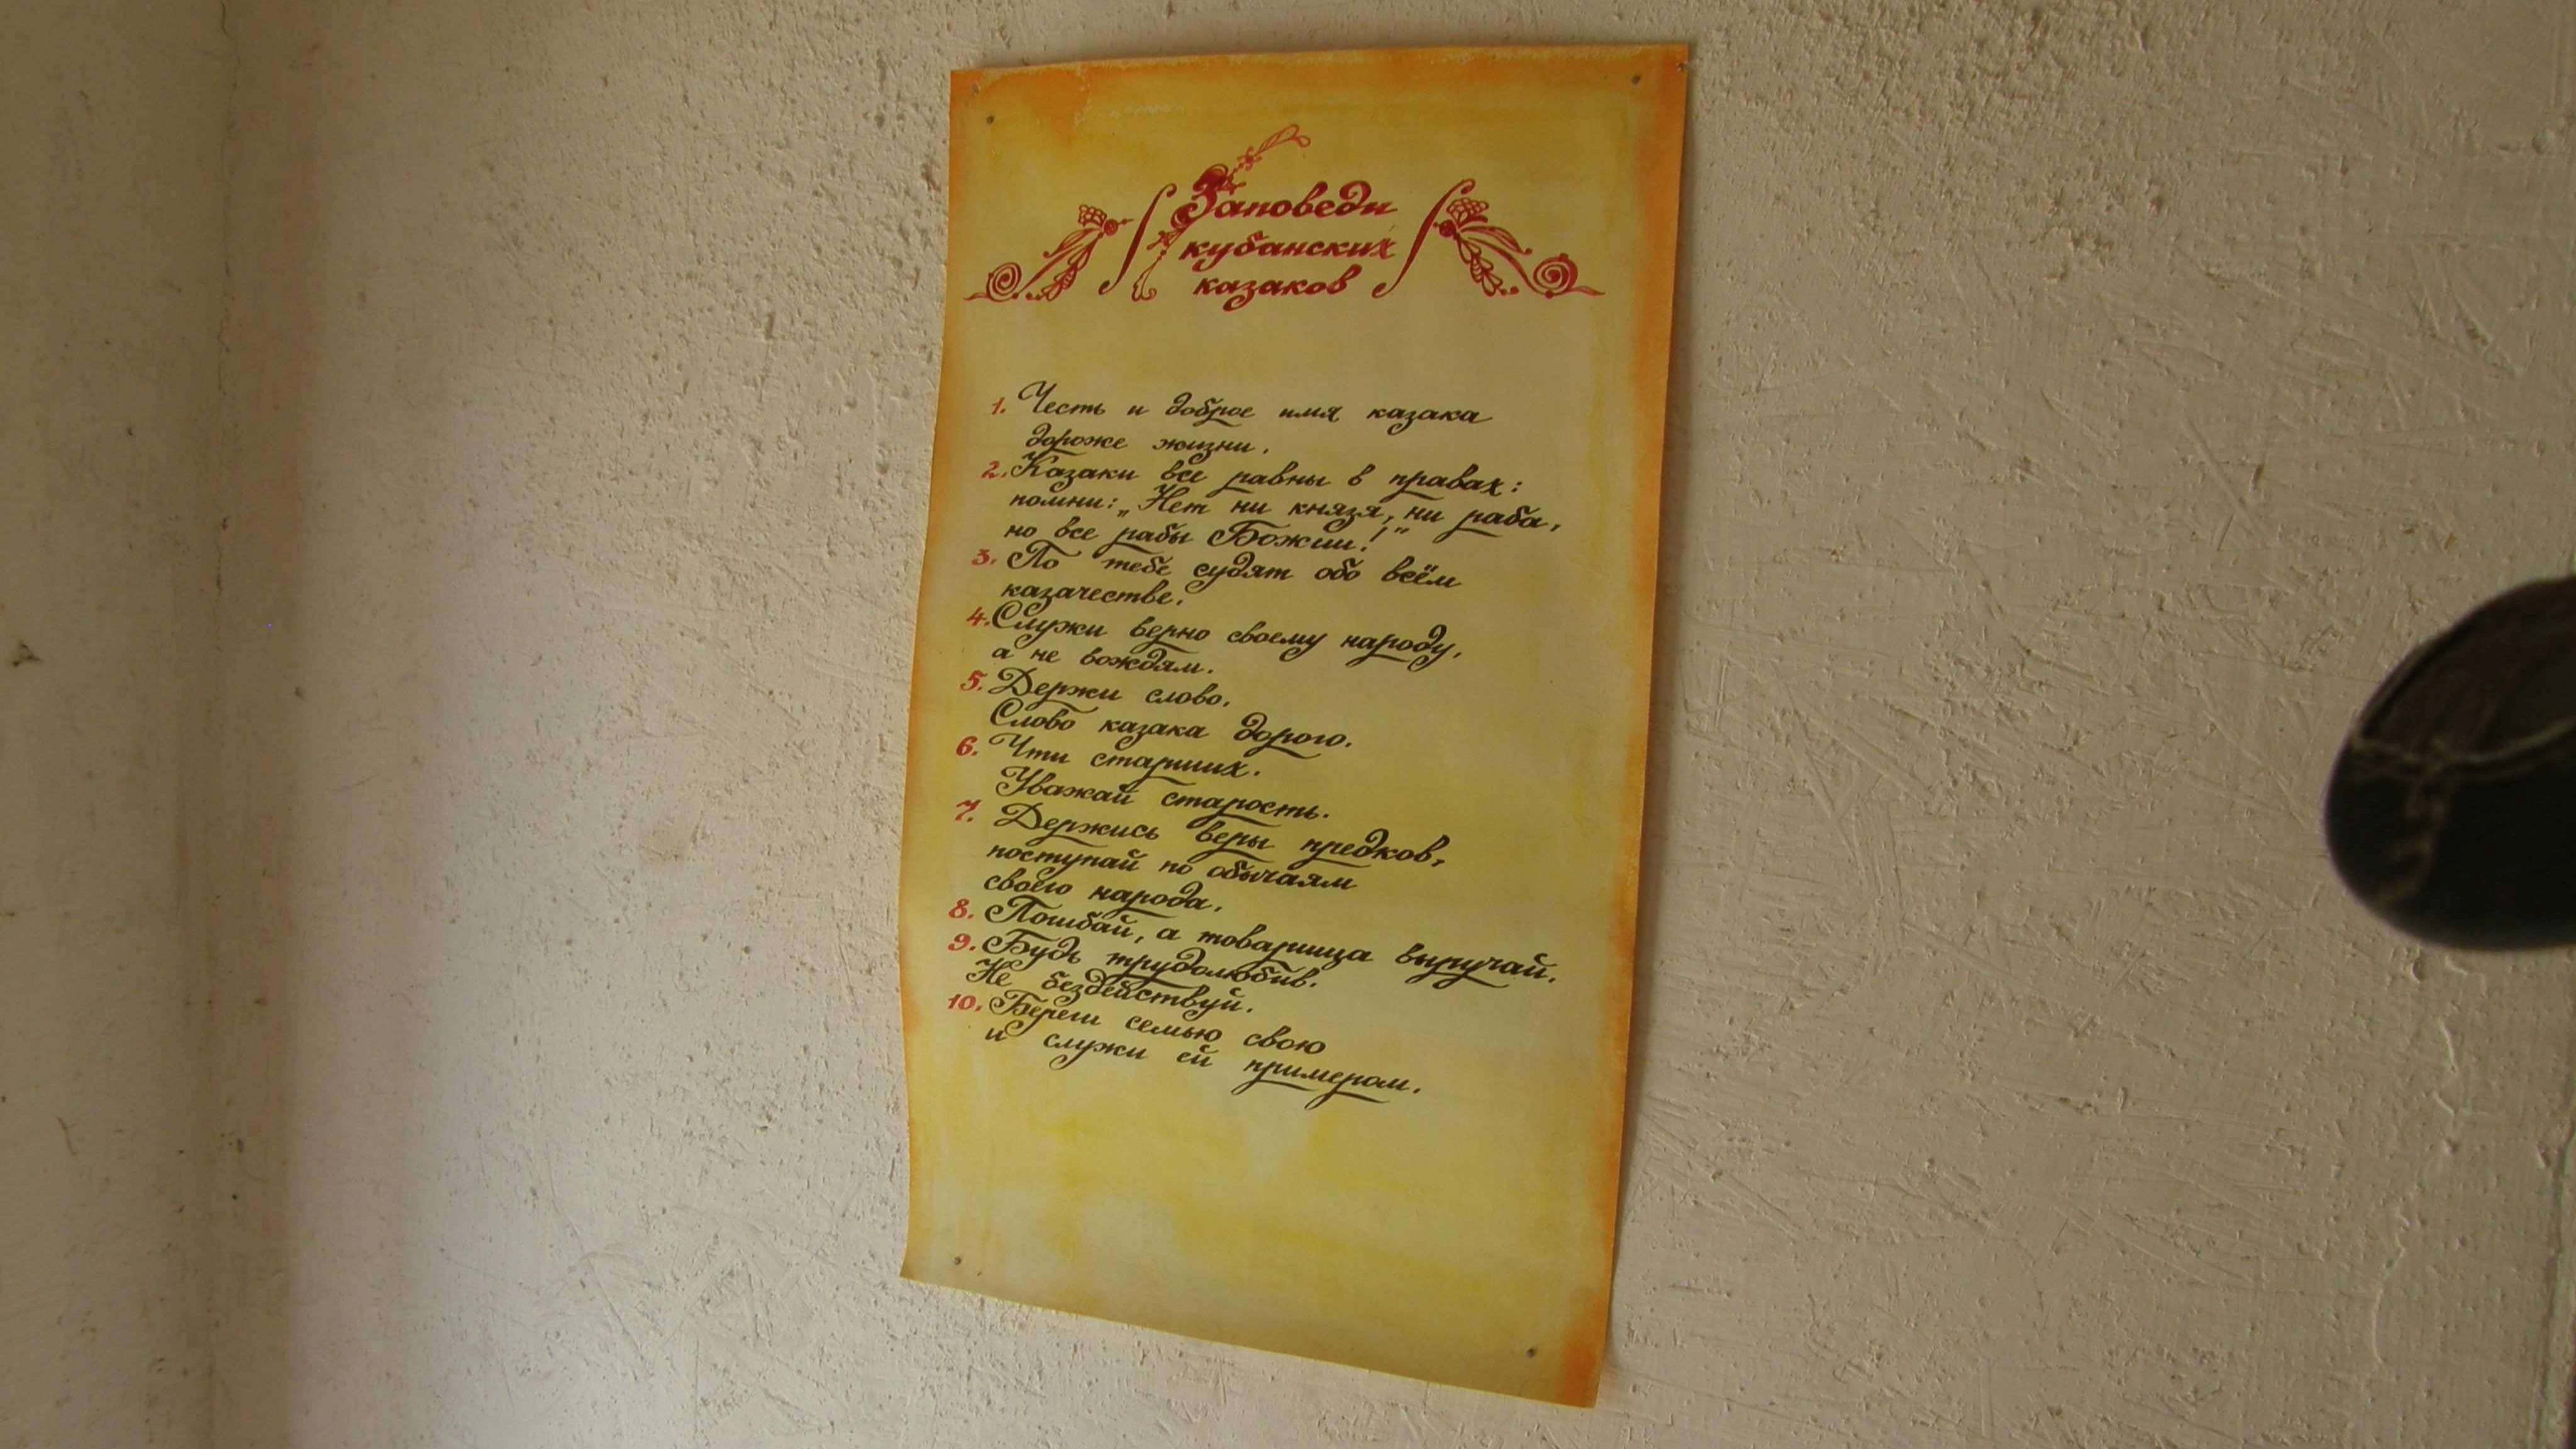 Заповеди
кубанских
казаков
1. Честь и доброе имя казака
дороже жизни.
2. Казаки все равны в правах:
помни: „Нет ни князя, ни раба,
но все рабы Божии!"
3. По тебе судят обо всём
казачестве.
4. Служи верно своему народу,
а не вождям.
5. Держи слово.
Слово казака дорого.
6. Чти старших.
Уважай старость.
7. Держись веры предков,
поступай по обычаям
своего народа.
8. Погибай, а товарища выручай.
9. Будь трудолюбив.
Не бездействуй.
10. Береги семью свою
и служи ей примером.